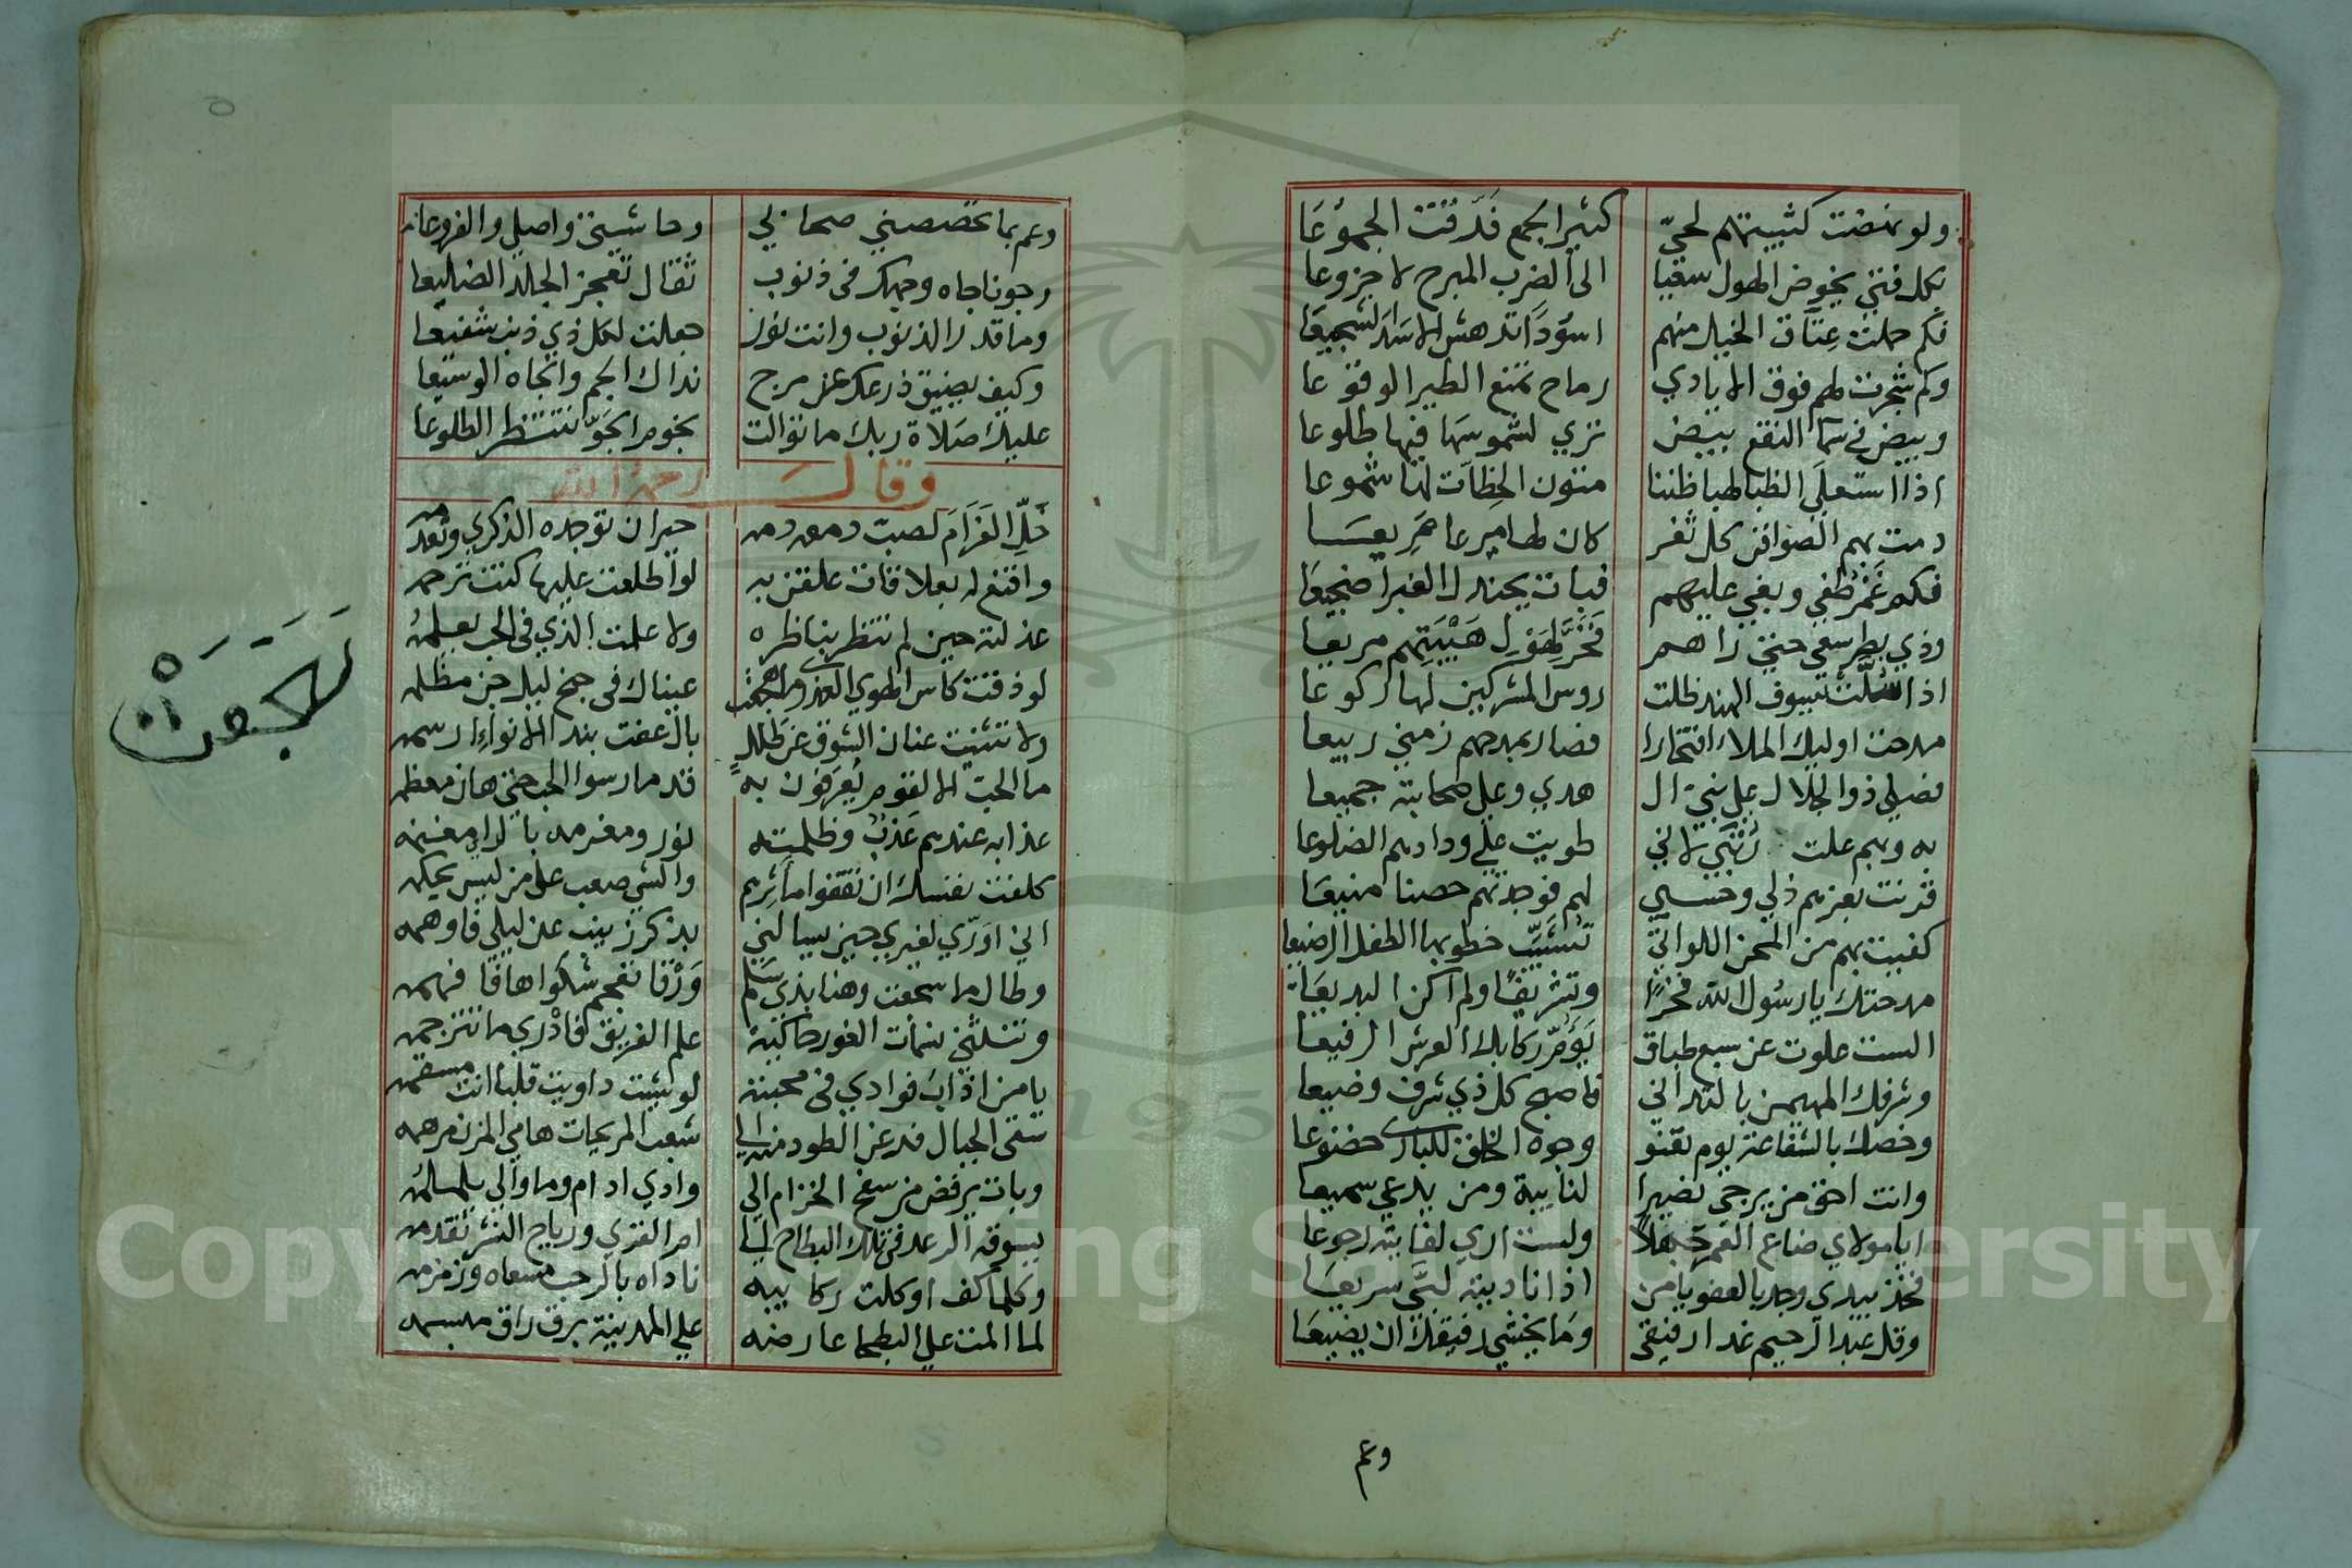 ولو نهضت كتيبتهم لحيّ كثير الجمع فَدّ فتت الجموُعَا
بكل فتي يخوض الهول سقيا الى الضرب المبرح لا جزوعا
فكم حملت عِتَاق الخيل منهم اسوُدًا تدهش الاسَد الشجيعَا
وكم شجرت لهم فوق الايادي رماح تمنع الطير الوقوعا
وبيض في سمآ النقع بيض تري لشموسهَا فيها طلوعا
اذا استعلَى الظبا لهبا ظننا متون الحظات لنا شموعا
دمت بهم الصوافن كل ثغر كان لها
فكم غَمْرٍ طغي وبغي عليهم فبات بجندل الغبرا ضجيعَا
وذي بطر سغي حتي راهم فَخَرَّ لِهَوْلِ هَيْبَتِهِم صريعا
اذا سُلّت سيوف الهند ظلت روس المشركين لها ركوعا
مدحت اوليك الملاء افتخارا فصار بمدحهم زمني ربيعا
فصلي ذو الجلال علي بني ال هدي وعلى صحابته جميعا
به وبهم علت رُتَبي لاني طويت علي ودادهم الضلوعا
قرنت بعزهم ذلي وحسبي بهم فوجدتهم حصنا منيعَا
كفيت بهم من المحن اللواتي تُشَيّبُ خطوبها الطفل الرضيعا
مدحتك يا رسُول الله فخرًا وتشريفًا ولم اكن البديعَا
الست علوت عن سبع طباق يَؤمّ ركابك العرش الرفيعا
وشرفك المهيمن بالتداني فاصبح كل ذي شرف وضيعا
وخصك بالشفاعة يوم تعنو وجوه الخلق للباري خضوعا
وانت احق من يرجي نصيرا لنايبة ومن يدعي سميعا
ايا مولاي ضاع العمر جَهلاً ولست اري لفايته رجوعا
فخذ بيدي وجد بالعفو يا من اذا ناديته لبَّي سريعَا
وقل عبد الرحيم غدا رفيقي وَما يخشي رفيقك ان يضيعَا
وعم
وعم بما تخصصني صحابي وحاشيتي واصلي والفروعا
رجوناجاه وجهك في ذنوب ثقال تعجز الجلد الضليعا
وما قدر الذنوب وانت نور جعلت لكل ذي ذنب شفيعا
وكيف يضيق ذرعك عن مرج نداك الجم والجاه الوسيعا
عليك صَلاة ربك ما توالت نجوم الجَوّ تنتظر الطلوعا
وقال رحمه الله
خَلِّ الغَرَامَ لصب دمعه دمه حيران توجده الذكري وتعدمه
واقنع له بعلاقات علقن به لو اطلعت عليها كنت ترحمه
عذلته حين لم تنظر بناظره ولا علمت الذي في الحب يعلمُه
لو ذقت كاس الهوي العذري ما هجعت عيناك في جنح ليل جن مظلمه
ولا ثنيت عنان الشوق عن طللٍ بال عفت بيد الانوآء ارسمه
ما الحب الا لقوم يُعرَفون به قد مارسوا الحب حتي هان معظمه
عذابه عندهم عَذبٌ وظلمته نور ومغرمه بالراء مغنمه
كلفت نفسك ان تقفوا مآثِرهم والشي صعب على من ليس يحكمه
اني اوَرّي لغيري حين يسالني بذكر زينب عن ليلي فاوهمه
وطال ما سجعت وهنا بذي سَلَم وَرْقا تعجم شكواها فافهمه
وتنثني نسَمات الغور حاكيَة علم الفريق فادْري ما تترجمه
يا من اذابَ فوادي في محبته لو شيت داويت قلبا انت مسقمه
سقى الجبال فدعن الطود منه الي شعب المريحات هامي المزن مرهمه
وبات يرفض من سفح الخزام الي وادي ادام وما والي يلملمُه
يسوقه الرعد في تلك البطاح الي ام القري ورياح النشر تقدمه
وكلما كف او كلت ركايبه ناداه بالرحب مسعاه وزمزمه
لما المت علي البطحا عارضه علي المدينة برق راق مبسمه